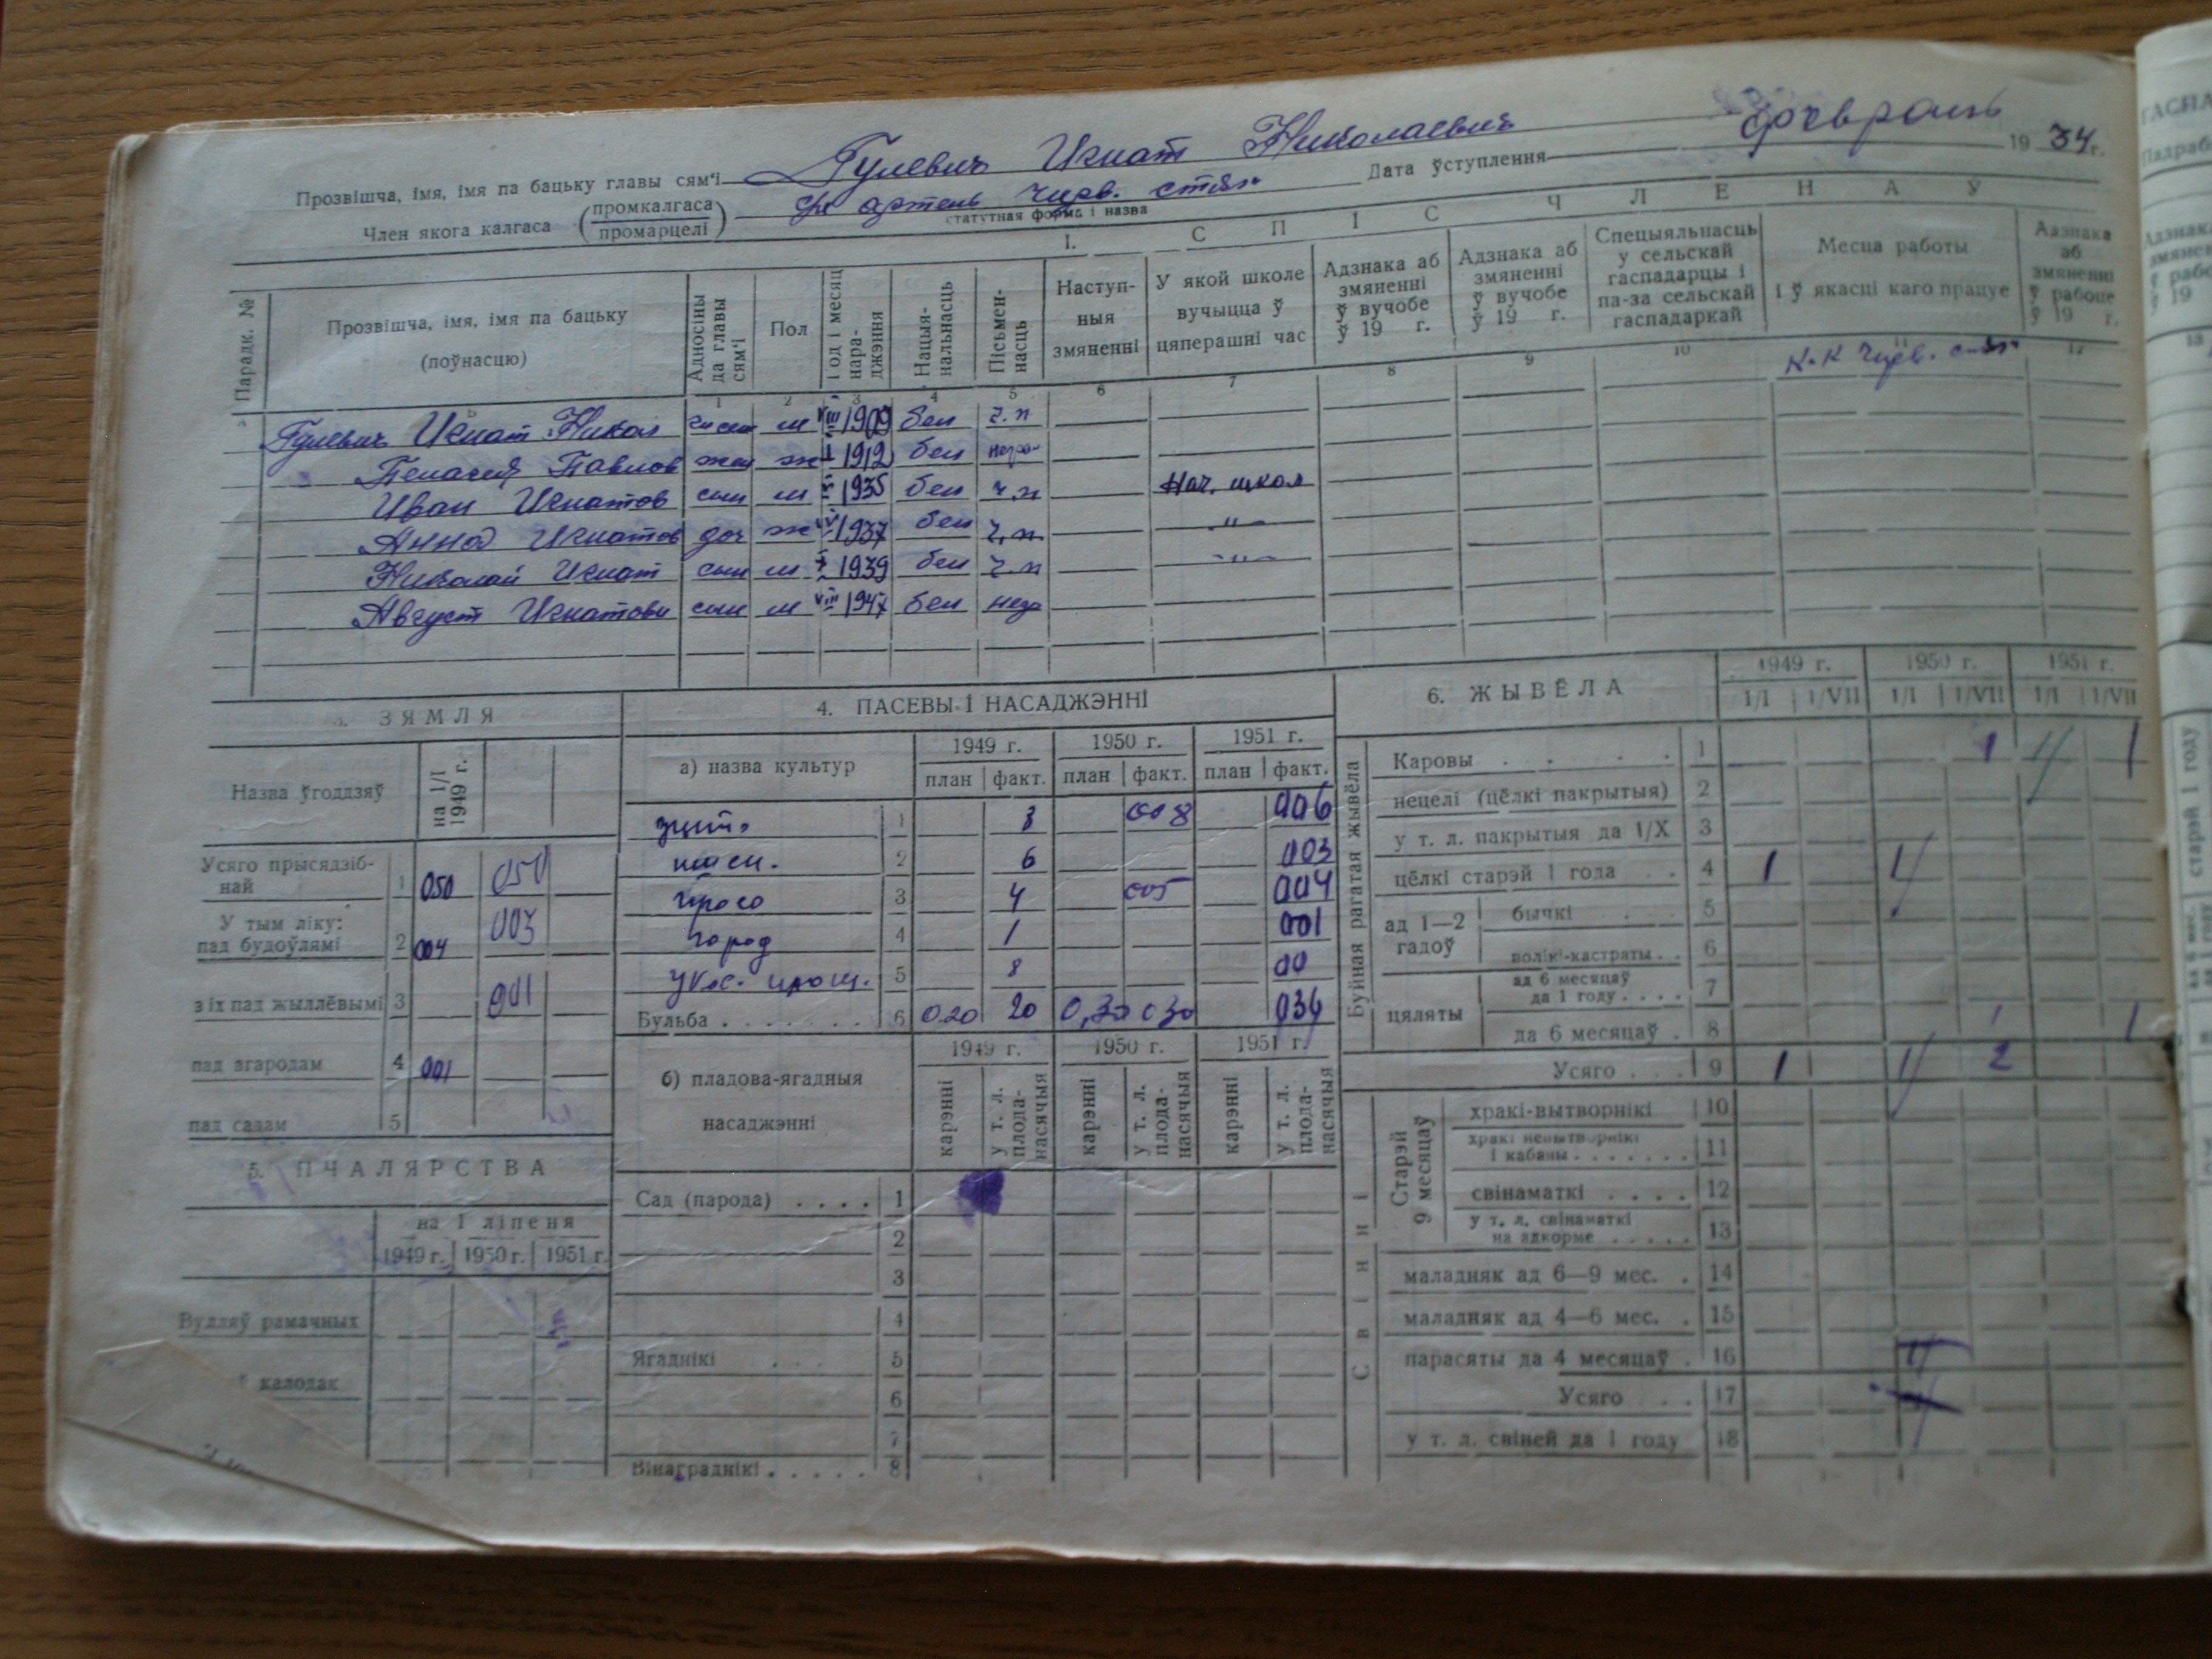 Прозвішча, імя, імя па бацьку главы сям'і Гулевич Игнат Николаевич
Дата ўступлення февраль 1934 г.
Член якога калгаса (промкалгаса / промарцелі) с/х артель Черв. стяг
статутная форма і назва
І. СПІС ЧЛЕНАЎ
Парадк. №
Прозвішча, імя, імя па бацьку (поўнасцю)
Адносіны да главы сям'і
Пол
Год і месяц нараджэння
Нацыянальнасць
Пісьменнасць
Наступныя змяненні
У якой школе вучыцца ў цяперашні час
Адзнака аб змяненні ў вучобе ў 19 г.
Адзнака аб змяненні ў вучобе ў 19 г.
Спецыяльнасць у сельскай гаспадарцы і па-за сельскай гаспадаркай
Месца работы і ў якасці каго працуе
Адзнака аб змяненні ў рабоце ў 19 г.
1 2 3 4 5 6 7 8 9 10 12
Гулевич Игнат Никол м VIII 1909 бел г.п К-к Черв.
Пелагея Павлов жен ж 1912 бел негр
Иван Игнатов сын м 1935 бел г.п Нач. школ
Анна Игнатов доч ж 1937 бел г.п -"-
Николай Игнат сын м 1939 бел г.п -"-
Август Игнатови сын м VIII 1947 бел негр
3. ЗЯМЛЯ
Назва ўгоддзяў
на 1/I 1949 г.
Усяго прысядзібнай 1 050
У тым ліку: пад будоўлямі 2 004 003
з іх пад жыллёвымі 3 001
пад агародам 4 001
пад садам 5
5. ПЧАЛЯРСТВА
на 1 ліпеня
1949 г. 1950 г. 1951 г.
Вулляў рамачных
калодак
4. ПАСЕВЫ І НАСАДЖЭННІ
а) назва культур
1949 г. 1950 г. 1951 г.
план факт. план факт. план факт.
1 008 006
пшен. 2 6 003
просо 3 4 005 004
город 4 1 001
5 8 00
Бульба 6 020 20 0,30 030
б) пладова-ягадныя насаджэнні
1949 г. 1950 г. 1951 г.
карэнні у т. л. плоданасячыя карэнні у т. л. плоданасячыя карэнні у т. л. плоданасячыя
Сад (парода) 1
2
3
4
Ягаднікі 5
6
7
Вінаграднікі 8
6. ЖЫВЁЛА
1949 г. 1950 г. 1951 г.
1/I 1/VII 1/I 1/VII 1/I 1/VII
Буйная рагатая жывёла
Каровы 1 1 1
нецелі (цёлкі пакрытыя) 2
у т. л. пакрытыя да 1/X 3
цёлкі старэй 1 года 4 1
ад 1—2 гадоў
бычкі 5
волікі-кастраты 6
цяляты
ад 6 месяцаў да 1 году 7
да 6 месяцаў 8 1 1
Усяго 9 1 2
Свінні
Старэй 9 месяцаў
хракі-вытворнікі 10
хракі невытворнікі і кабаны 11
свінаматкі 12
у т. л. свінаматкі на адкорме 13
маладняк ад 6—9 мес. 14
маладняк ад 4—6 мес. 15
парасяты да 4 месяцаў 16
Усяго 17
у т. л. свіней да 1 году 18